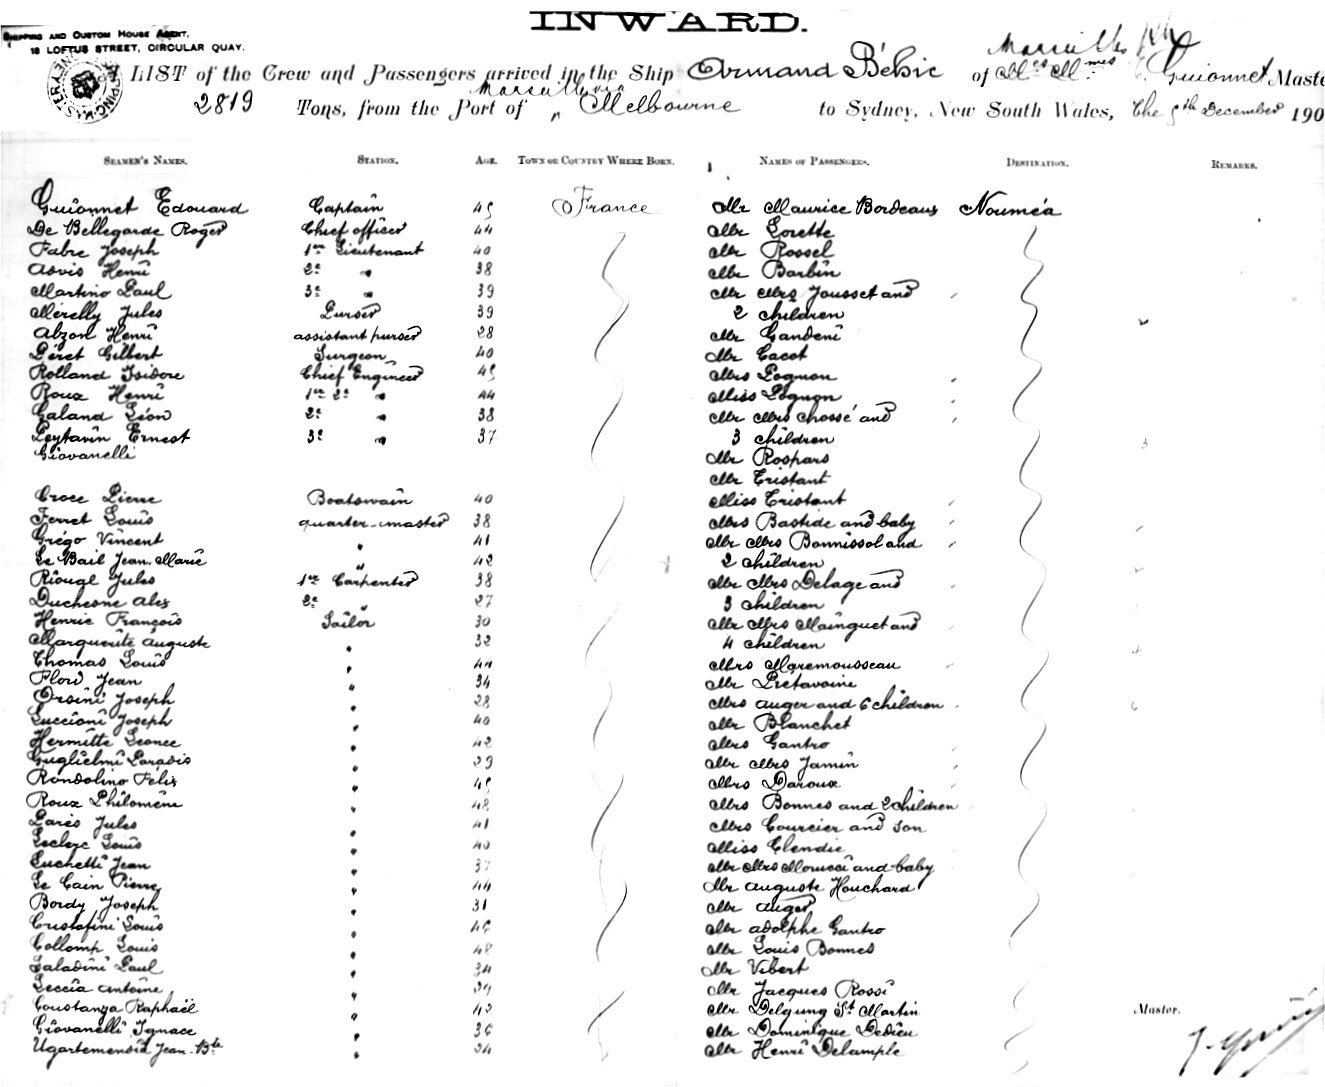 INWARD.
SHIPPING AND CUSTOM HOUSE AGENT,
18 LOFTUS STREET, CIRCULAR QUAY.
Marseilles
LIST of the Crew and Passengers arrived in the Ship Armand Béhic of Guionnet Master
Marseilles via
2819 Tons, from the Port of " Melbourne to Sydney, New South Wales, the December 190
SEAMEN'S NAMES. STATION. AGE. TOWN OR COUNTRY WHERE BORN. NAMES OF PASSENGERS. DESTINATION. REMARKS.
Guionnet Edouard Captain 45 France Mr Maurice Bordeaux Nouméa
De Bellegarde Roger Chief officer 44 Mr Lorette
Fabre Joseph 1er Lieutenant 40 Mr Rossel
Asvis Henri 2e " 38 Mr Barbin
Martino Paul 3e " 39 Mr Mrs Jousset and
Mérelly Jules Purser 39 2 children 2
Abzon Henri assistant purser 28 Mr Gandeni
Péret Gilbert Surgeon 40 Mr Cacot
Rolland Isidore Chief Engineer 45 Mrs Lognon
Roux Henri 1er 2e " 44 Miss Lognon
Galand Léon 2e " 38 Mr Mrs Chossé and
Peytavin Ernest 3e " 37 3 children 3
Giovanelli Mr Rospars
Mr Tristant
Croce Pierre Boatswain 40 Miss Tristant
Ferret Louis quarter-master 38 Mrs Bastide and baby
Grégo Vincent " 41 Mr Mrs Bonnissol and
Le Bail Jean Marie " 42 2 children
Riougl Jules 1er Carpenter 38 Mr Mrs Delage and
Duchesne Alex 2e " 27 3 children
Henric François Sailor 30 Mr Mrs Mainguet and
Marguerite Auguste " 32 4 children 4
Thomas Louis " 44 Mrs Maremousseau
Flow Jean " 34 Mr Prétavoine
Orsini Joseph " 28 Mrs Auger and 6 children 6
Luccioni Joseph " 40 Mr Blanchet
Hermitte Léonce " 42 Mrs Gantro
Guglielmi Paradis " 29 Mr Mrs Jamin
Rondolino Félix " 45 Mrs Daroux
Roux Philomène " 48 Mrs Bonnes and 2 children
Parès Jules " 41 Mrs Courcier and son
Leclerc Louis " 40 Miss Elendie
Luchetti Jean " 37 Mr Mrs Morucci and baby
Le Cain Pierre " 44 Mr Auguste Houchard
Bordy Joseph " 31 Mr Auger
Cristofini Louis " 46 Mr Adolphe Gantro
Collomp Louis " 48 Mr Louis Bonnes
Saladini Paul " 34 Mr Vibert
Leccia Antoine " 39 Mr Jacques Rossi
Constanza Raphaël " 42 Mr Delgung St Martin Master.
Giovanelli Ignace " 36 Mr Dominique Dedieu
Ugartemendia Jean Bte " 34 Mr Henri Delample